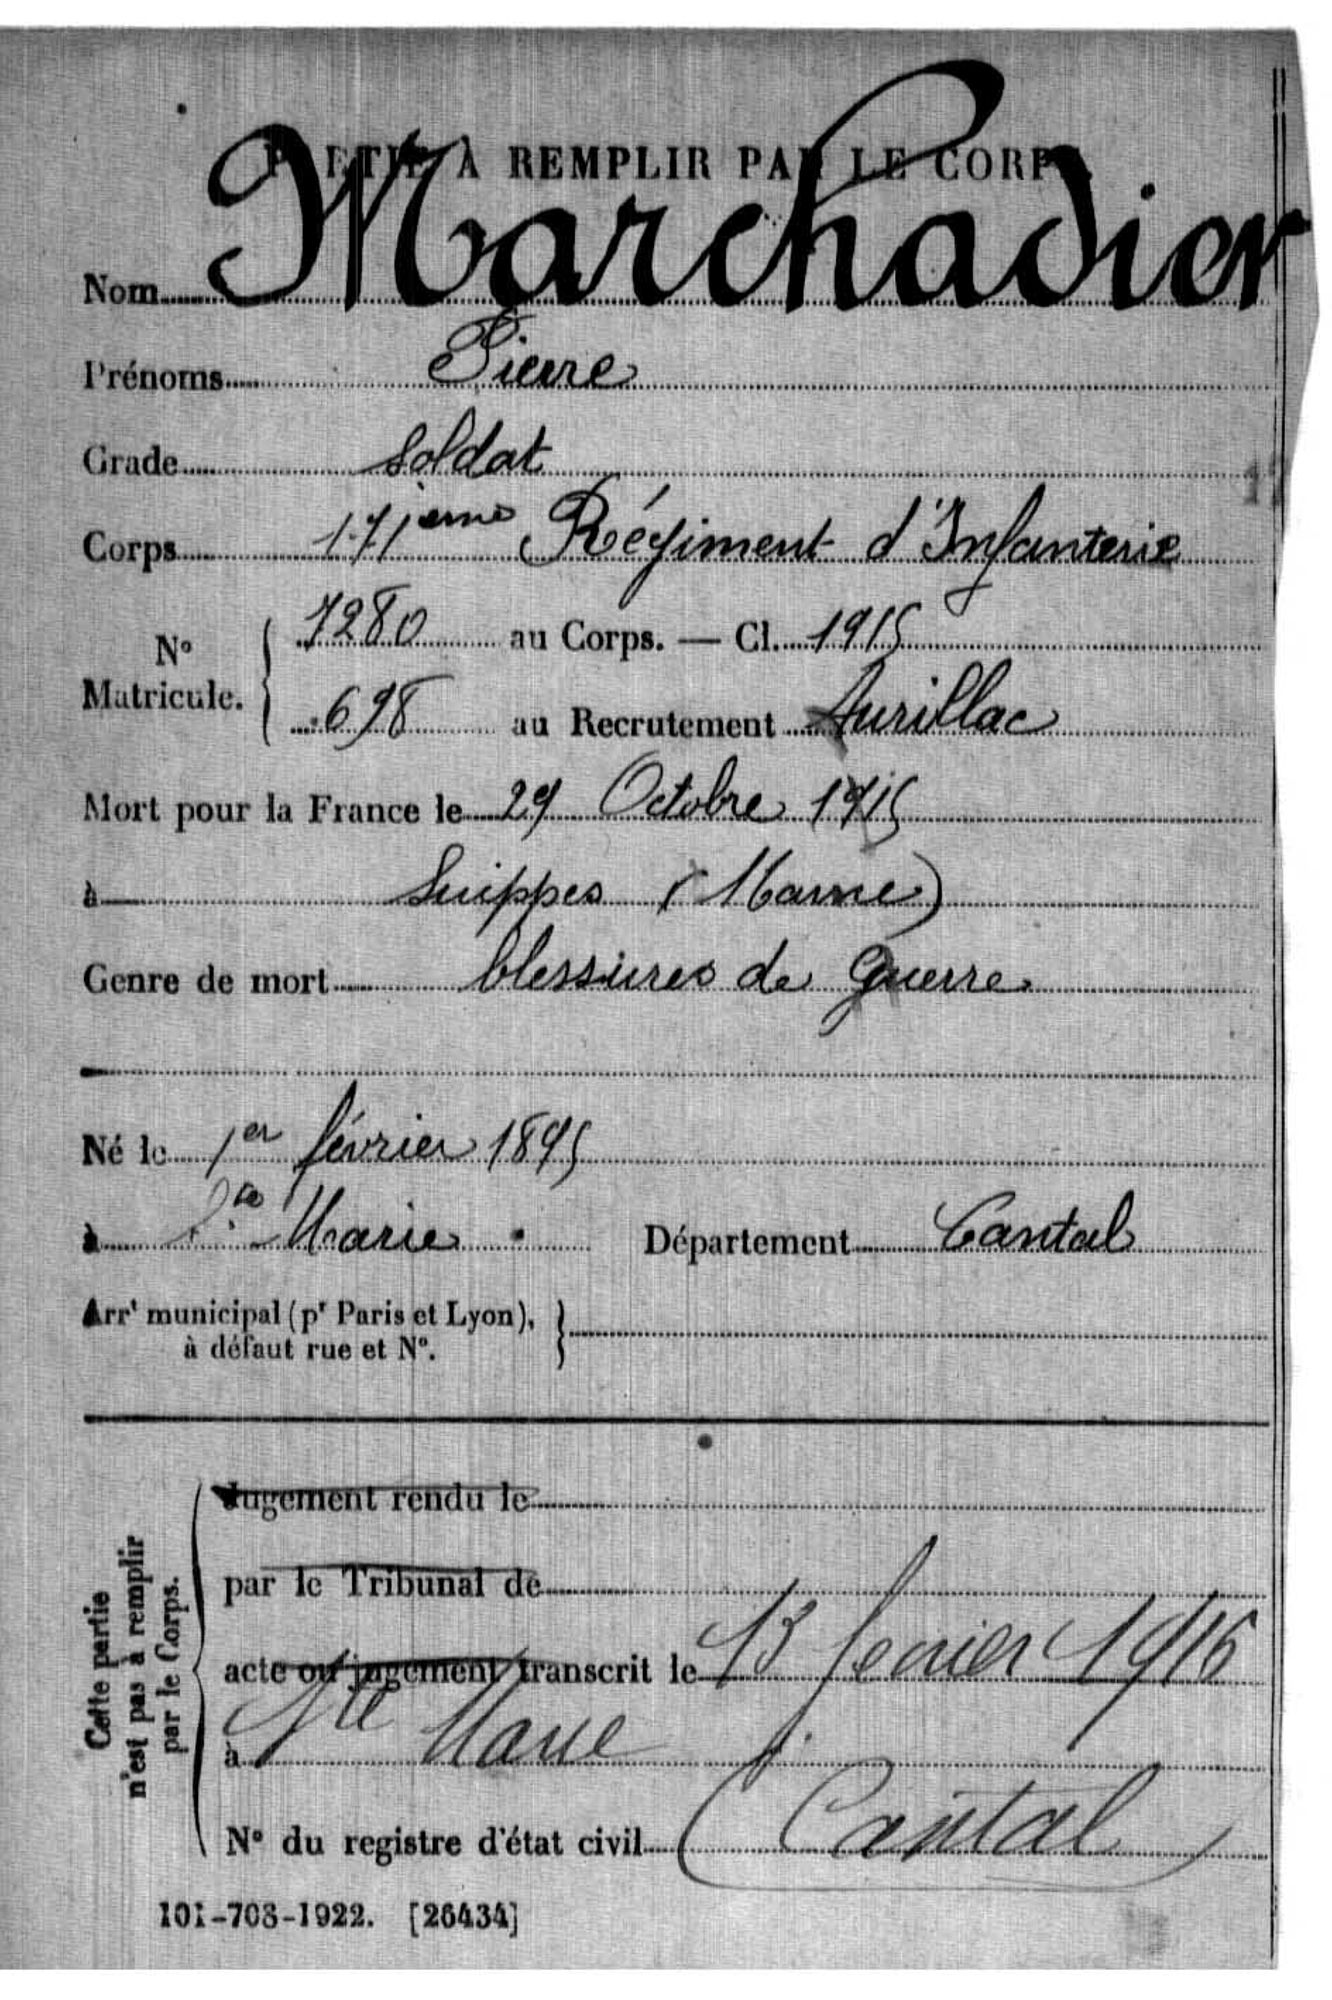 PARTIE À REMPLIR PAR LE CORPS.
Nom Marchadier
Prénoms Pierre
Grade Soldat
Corps 171ième Régiment d'Infanterie
N° Matricule. 7280 au Corps. — Cl. 1915
698 au Recrutement Aurillac
Mort pour la France le 29 Octobre 1915
à Suippes (Marne)
Genre de mort blessures de Guerre
Né le 1er février 1895
à Ste Marie Département Cantal
Arrt municipal (pr Paris et Lyon), à défaut rue et N°.
Cette partie n'est pas à remplir par le Corps.
Jugement rendu le
par le Tribunal de
acte ou jugement transcrit le 13 fevrier 1916
à Ste Marie
N° du registre d'état civil (Cantal)
101-708-1922. [26434]